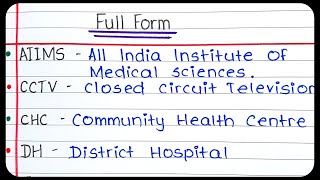 Full Form
• AIIMS - All India Institute Of
Medical sciences.
• CCTV - closed circuit Television
• CHC - Community Health Centre
• DH - District Hospital